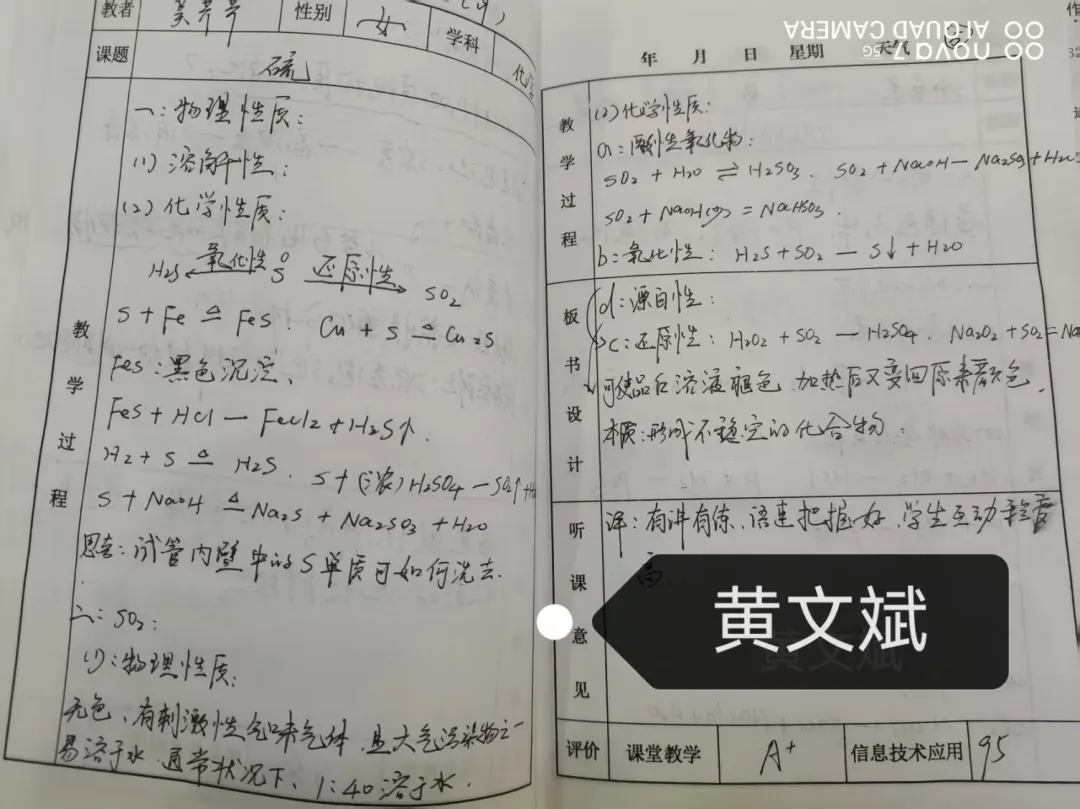 教者
性别 女
学科 化学
课题 硫
教学过程
一:物理性质:
(1) 溶解性:
(2) 化学性质:
H2S 氧化性 S 0 还原性 SO2
S + Fe △ FeS . Cu + S △ Cu2S
FeS:黑色沉淀、
FeS + HCl — FeCl2 + H2S↑.
H2 + S △ H2S . S + (浓) H2SO4 — SO2↑ +H
S + NaOH △ Na2S + Na2SO3 + H2O
思考:试管内壁中的S单质可如何洗去.
二:SO2:
(1):物理性质:
无色、有刺激性气味气体 是大气污染物之一
易溶于水 通常状况下、1:40溶于水.
年 月 日 星期 天气
nova 7 5G
AI QUAD CAMERA
教学过程
(2) 化学性质:
a:酸性氧化物:
SO2 + H2O ⇌ H2SO3. SO2 + NaOH — Na2SO3 + H2O
SO2 + NaOH(g) = NaHSO3.
b:氧化性: H2S + SO2 — S↓ + H2O
板书设计
d:漂白性:
c:还原性: H2O2 + SO2 — H2SO4. Na2O2 + SO2 = Na
可使品红溶液褪色 加热后又变回原来颜色.
本质:形成不稳定的化合物.
听课意见
评:有讲有练、语速把握好、学生互动程度
高
黄文斌
评价 课堂教学 A+ 信息技术应用 95